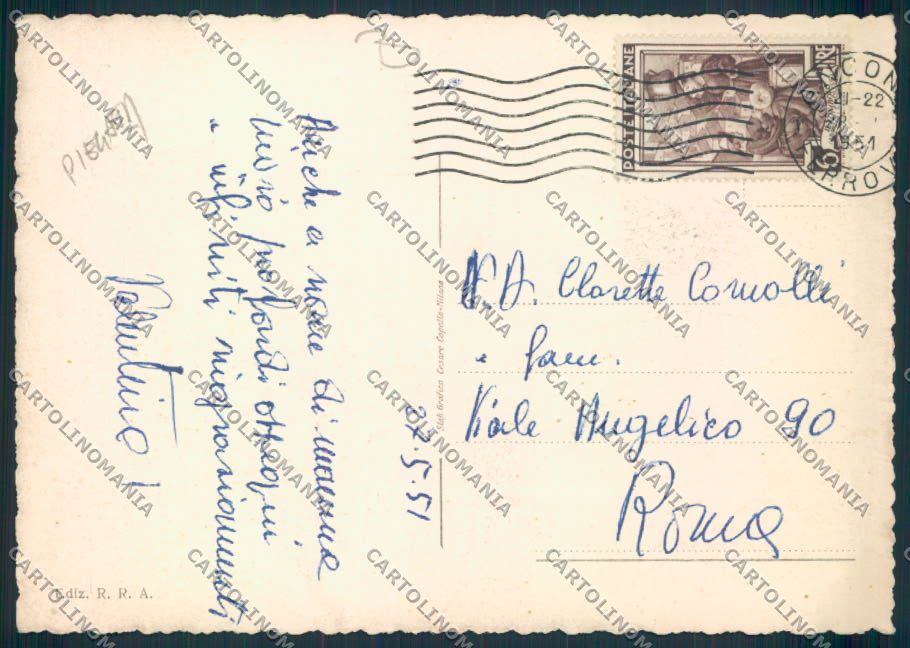 Anche a nome di mamma
invio profondi ossequi
e infiniti ringraziamenti
Valentino
27.5.51
N.D. Clorette Comolli
e fam.
Viale Angelico 90
Roma
POSTE ITALIANE
LIRE
6
ANCONA
-22
1951
FERROVIA
Stab. Grafico Cesare Capello-Milano
Ediz. R. R. A.
CARTOLINOMANIA